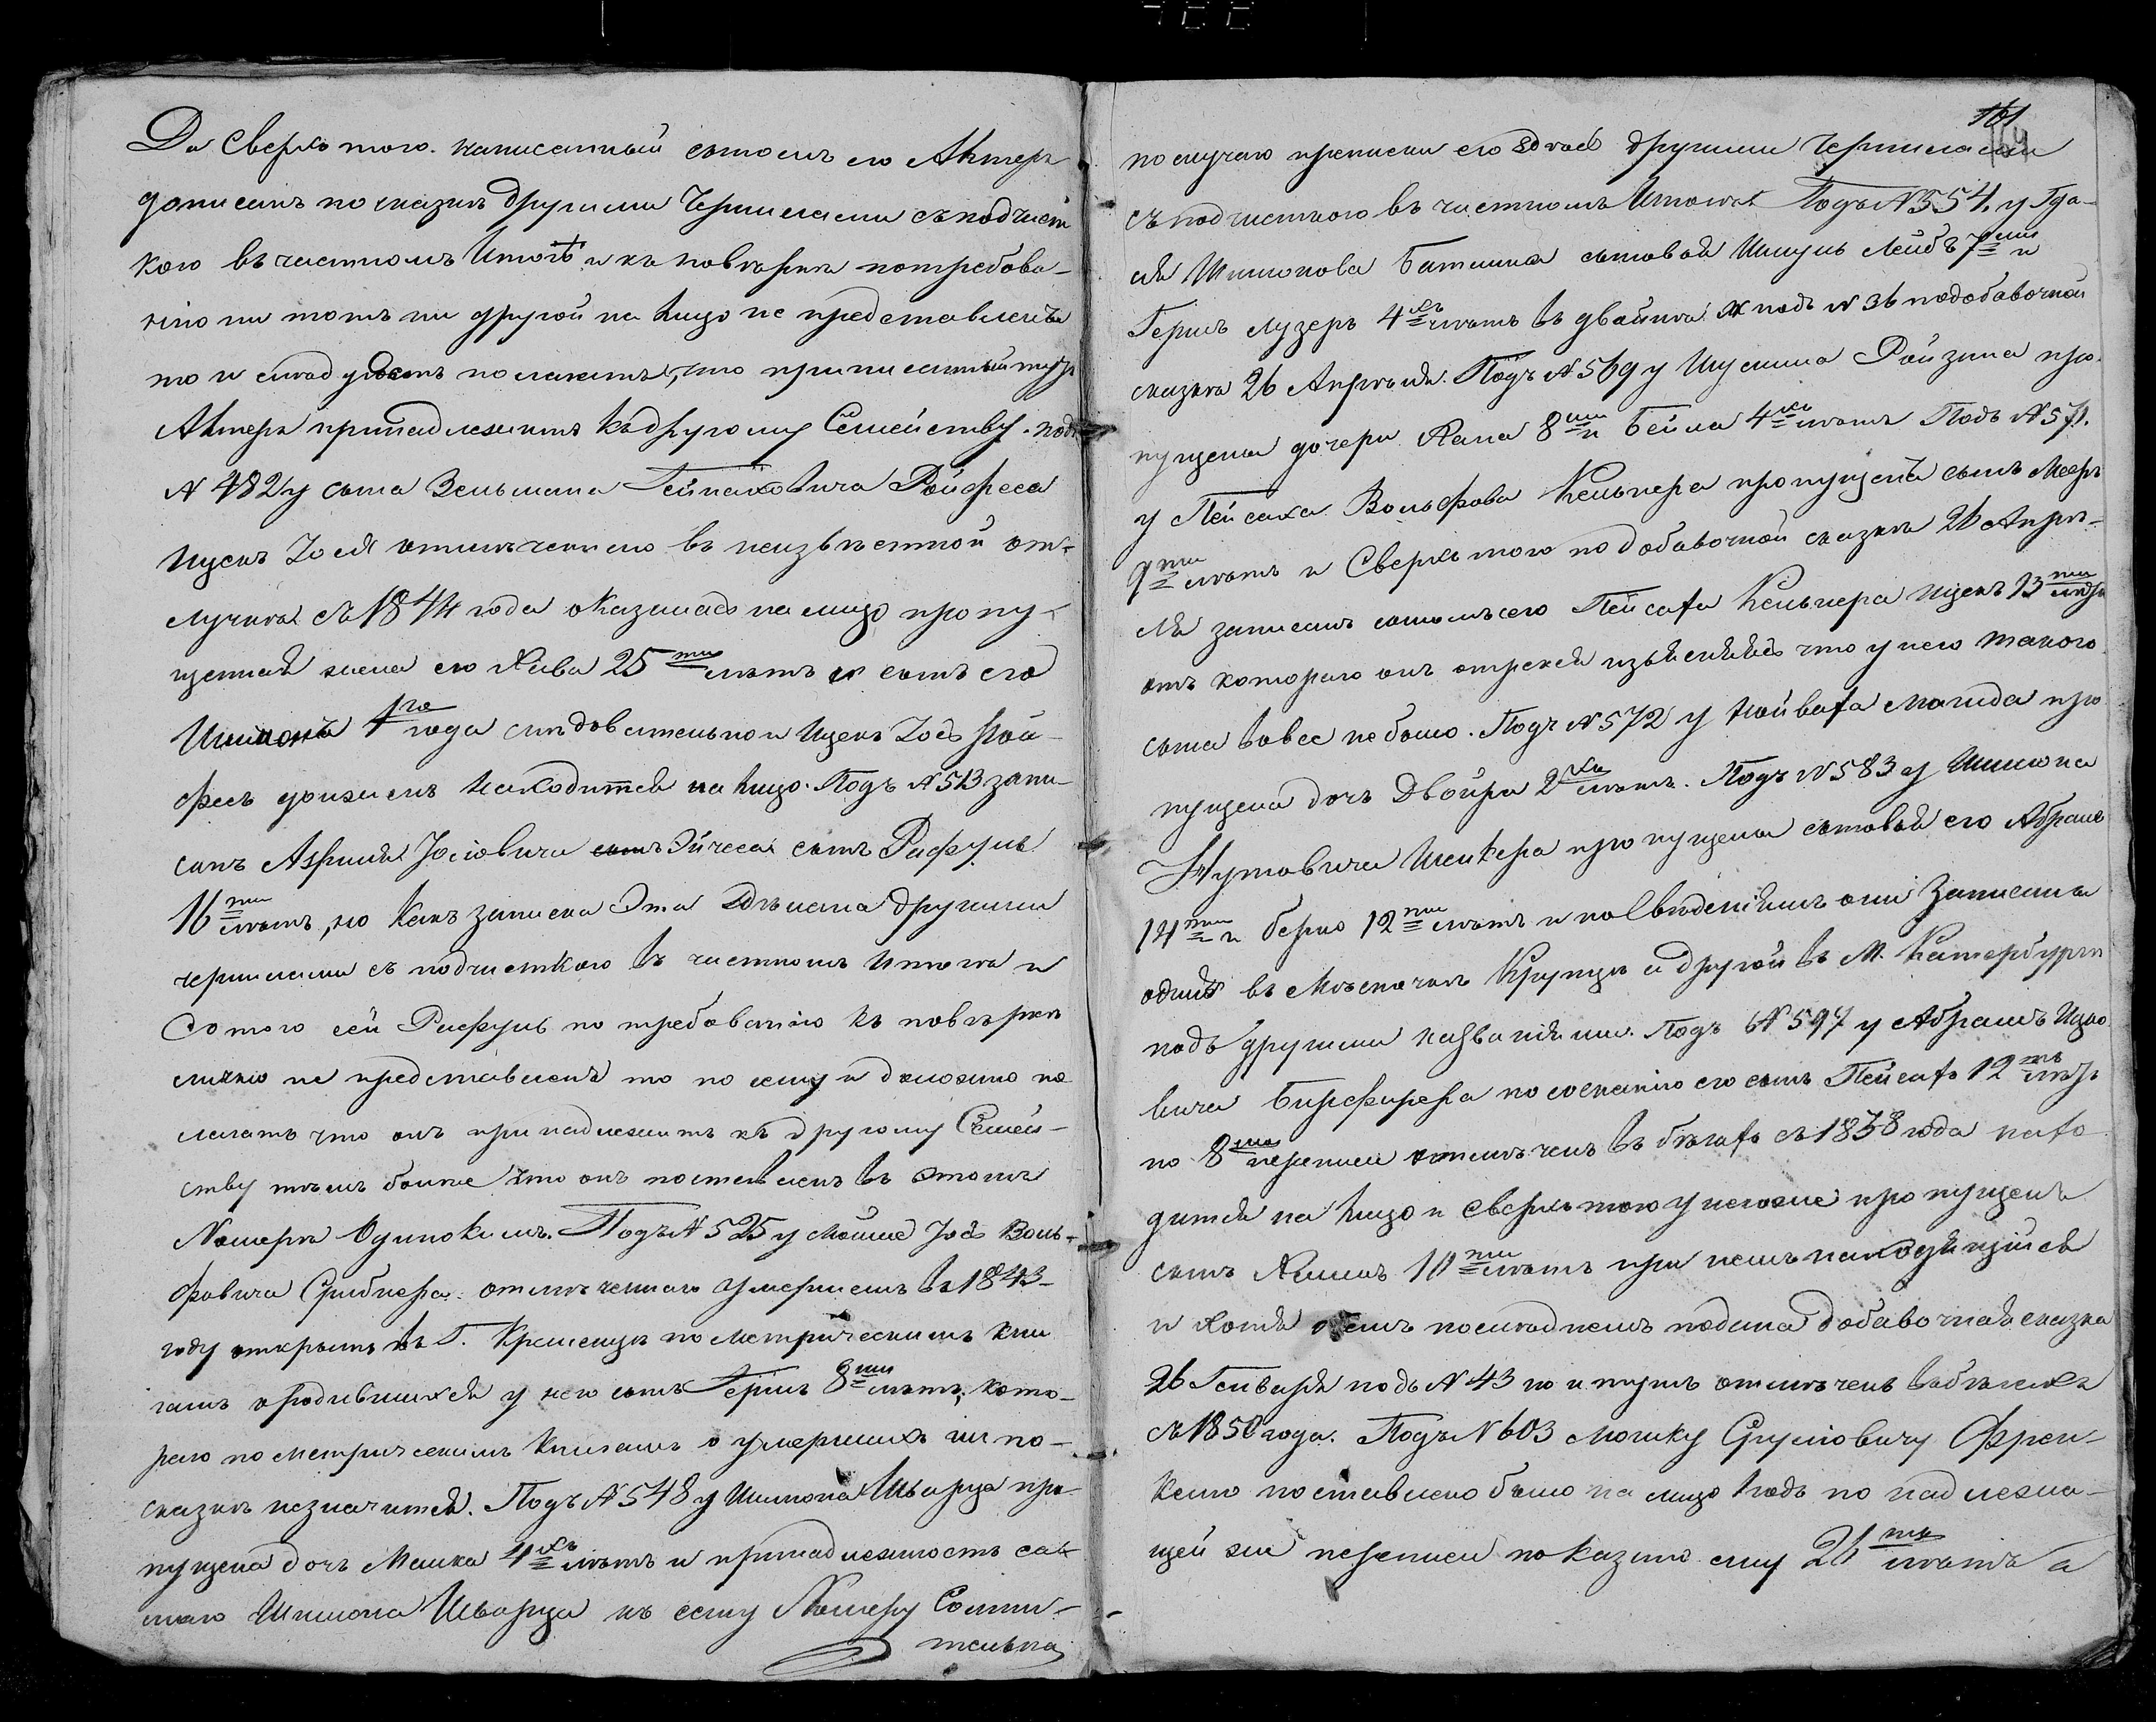 Да Сверхъ того. написанный сыномъ его Актеръ
дописанъ по сказкѣ другими Чернилами съ подчист
кою въ частномъ Итогѣ и къ повѣркѣ по требова-
нію ни тотъ ни другой на лицо не представлены
то и слѣдуетъ полагать, что приписанный тутъ
Актеръ принадлежитъ къ другому Семейству. подъ
N 482 у сына Зельмана Гейнаховича Ройфеса
Ицекъ Іося отмѣченнаго въ неизвѣстной от-
лучкѣ съ 1844 года оказалась на лицо пропу-
щенная жена его Хива 25ти лѣтъ и сынъ его
Шимонъ 1го года слѣдовательно и Ицекъ Іось Рой-
фесъ долженъ находится на лицо. Подъ N 513 запи-
санъ Азриля Іосіовича Эйчеса сынъ Рафулъ
16ти лѣтъ, но какъ записка эта сдѣлана другими
чернилами съ подчисткою въ частномъ Итогѣ и
Сотого сей Рафулъ по требованію къ повѣркѣ
лично не представленъ то по сему и должно по
лагать что онъ принадлежитъ къ другому Семей-
ству тѣмъ болѣе что онъ поставленъ въ этомъ
Номерѣ Одинокимъ. Подъ N 525 у Мошме Іось Воль-
фовича Срибнера отмѣченнаго умершемъ въ 1843-
году открытъ въ Г. Кременцѣ по Метрическимъ кни
гамъ о родившихся у него сынъ Гершъ 8ми лѣтъ, кото-
раго по метрическимъ книгамъ о умершихъ ни по-
сказкѣ незначится. Подъ N 548 у Шимона Шварца про-
пущена дочь Малка 4хъ лѣтъ и принадлежность са-
маго Шимона Шварца къ сему Номеру Сомни-
тельна
161
по случаю приписки его здѣсь другими Чернилами
съ подчисткою въ частномъ Итогѣ. Подъ N 554. у Гда-
ля Шимонова Батмана сыновья Шмуль Лейбъ 7ми и
Гершъ Лузеръ 4хъ лѣтъ въ двойнѣ и подъ N 36 по добавочной
сказкѣ 26 Апрѣля. Подъ N 569 у Шулима Ройзина про-
пущены дочери Хана 8ми и Бейла 4хъ лѣтъ Подъ N 571.
у Пейсаха Вольфова Кельнера пропущенъ сынъ Мееръ
9ти лѣтъ и Сверхъ того по добавочной сказкѣ 26 Апрѣ-
ля записанъ сыномъ его Пейсаха Кельнера Ицекъ 13ти лѣтъ
отъ котораго онъ отрекся изъясняясь что у него такого
сына вовсе не было. Подъ N 572 у Нойваха Магида про
пущена дочь Двойра 2хъ лѣтъ. Подъ N 583 у Шимона
Нутовича Шенкера пропущены сыновья его Абрамъ
14ти и Берко 12ти лѣтъ и по Свѣденіямъ они Записаны
одинъ въ Мѣстечкѣ Крупцѣ а другой въ М. Катербургѣ
подъ другими названіями. Подъ N 597 у Абрамъ Ицко
вича Бирефирера по сысканію его сынъ Пейсахъ 12ть лѣтъ
по 8мой переписи отмѣченъ въ бѣгахъ съ 1838 года нахо
дится на лицо и сверхъ того у него же пропущенъ
сынъ Хаимъ 10ти лѣтъ при немъ находящійся
и хотя о семъ послѣднемъ подана добавочная сказка
26 Генваря подъ N 43 но и тутъ отмѣченъ въ бѣгахъ
съ 1850 года. Подъ N 603 Мошку Срулiовичу Френ-
келю поставлено было на лицо Годъ по надлежа-
щей же переписи показано ему 21ть лѣтъ а